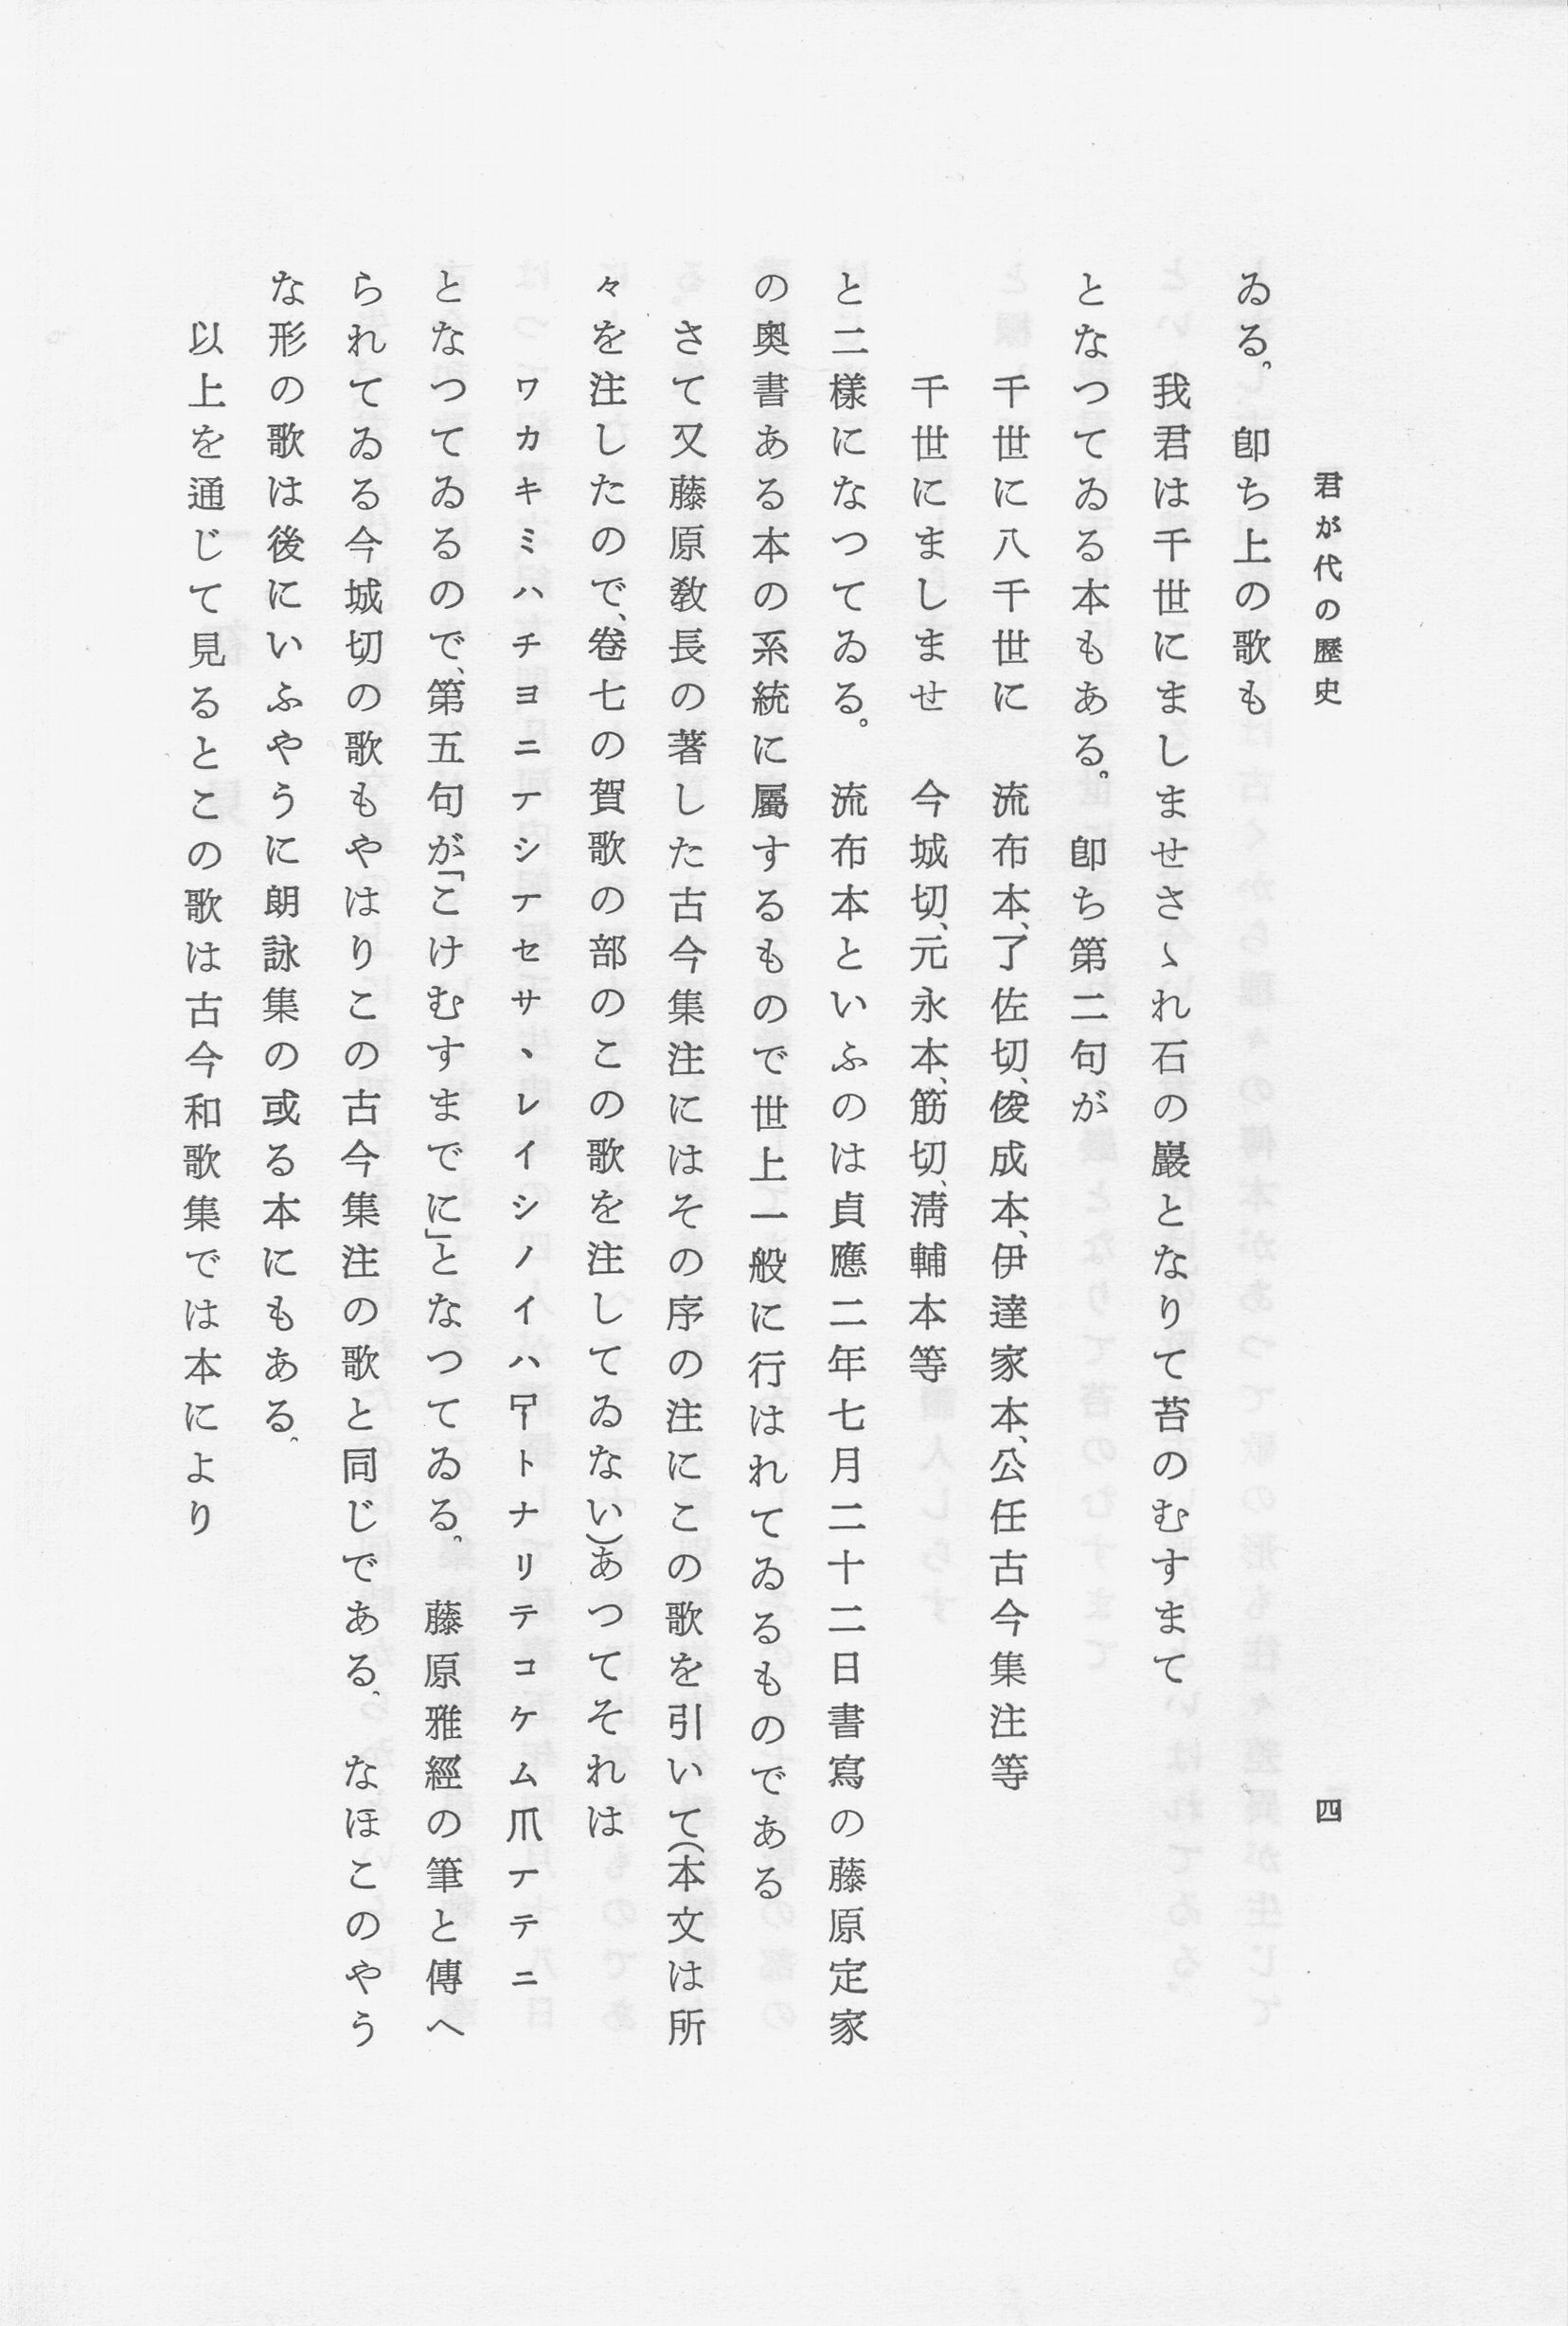 君が代の歷史
四
ゐる。卽ち上の歌も
我君は千世にましませさゝれ石の巖となりて苔のむすまて
となつてゐる本もある。卽ち第二句が
千世に八千世に　流布本、了佐切、俊成本、伊達家本、公任古今集注等
千世にましませ　今城切、元永本、筋切、淸輔本等
と二樣になつてゐる。流布本といふのは貞應二年七月二十二日書寫の藤原定家
の奧書ある本の系統に屬するもので世上一般に行はれてゐるものである
さて又藤原敎長の著した古今集注にはその序の注にこの歌を引いて(本文は所
々を注したので、卷七の賀歌の部のこの歌を注してゐない)あつてそれは
ワカキミハチヨニㇷシㇷセサヽレイシノイハㇷトナリテコケムㇲㇷテニ
となつてゐるので、第五句が「こけむすまでに」となつてゐる。藤原雅經の筆と傳へ
られてゐる今城切の歌もやはりこの古今集注の歌と同じである。なほこのやう
な形の歌は後にいふやうに朗詠集の或る本にもある。
以上を通じて見るとこの歌は古今和歌集では本により